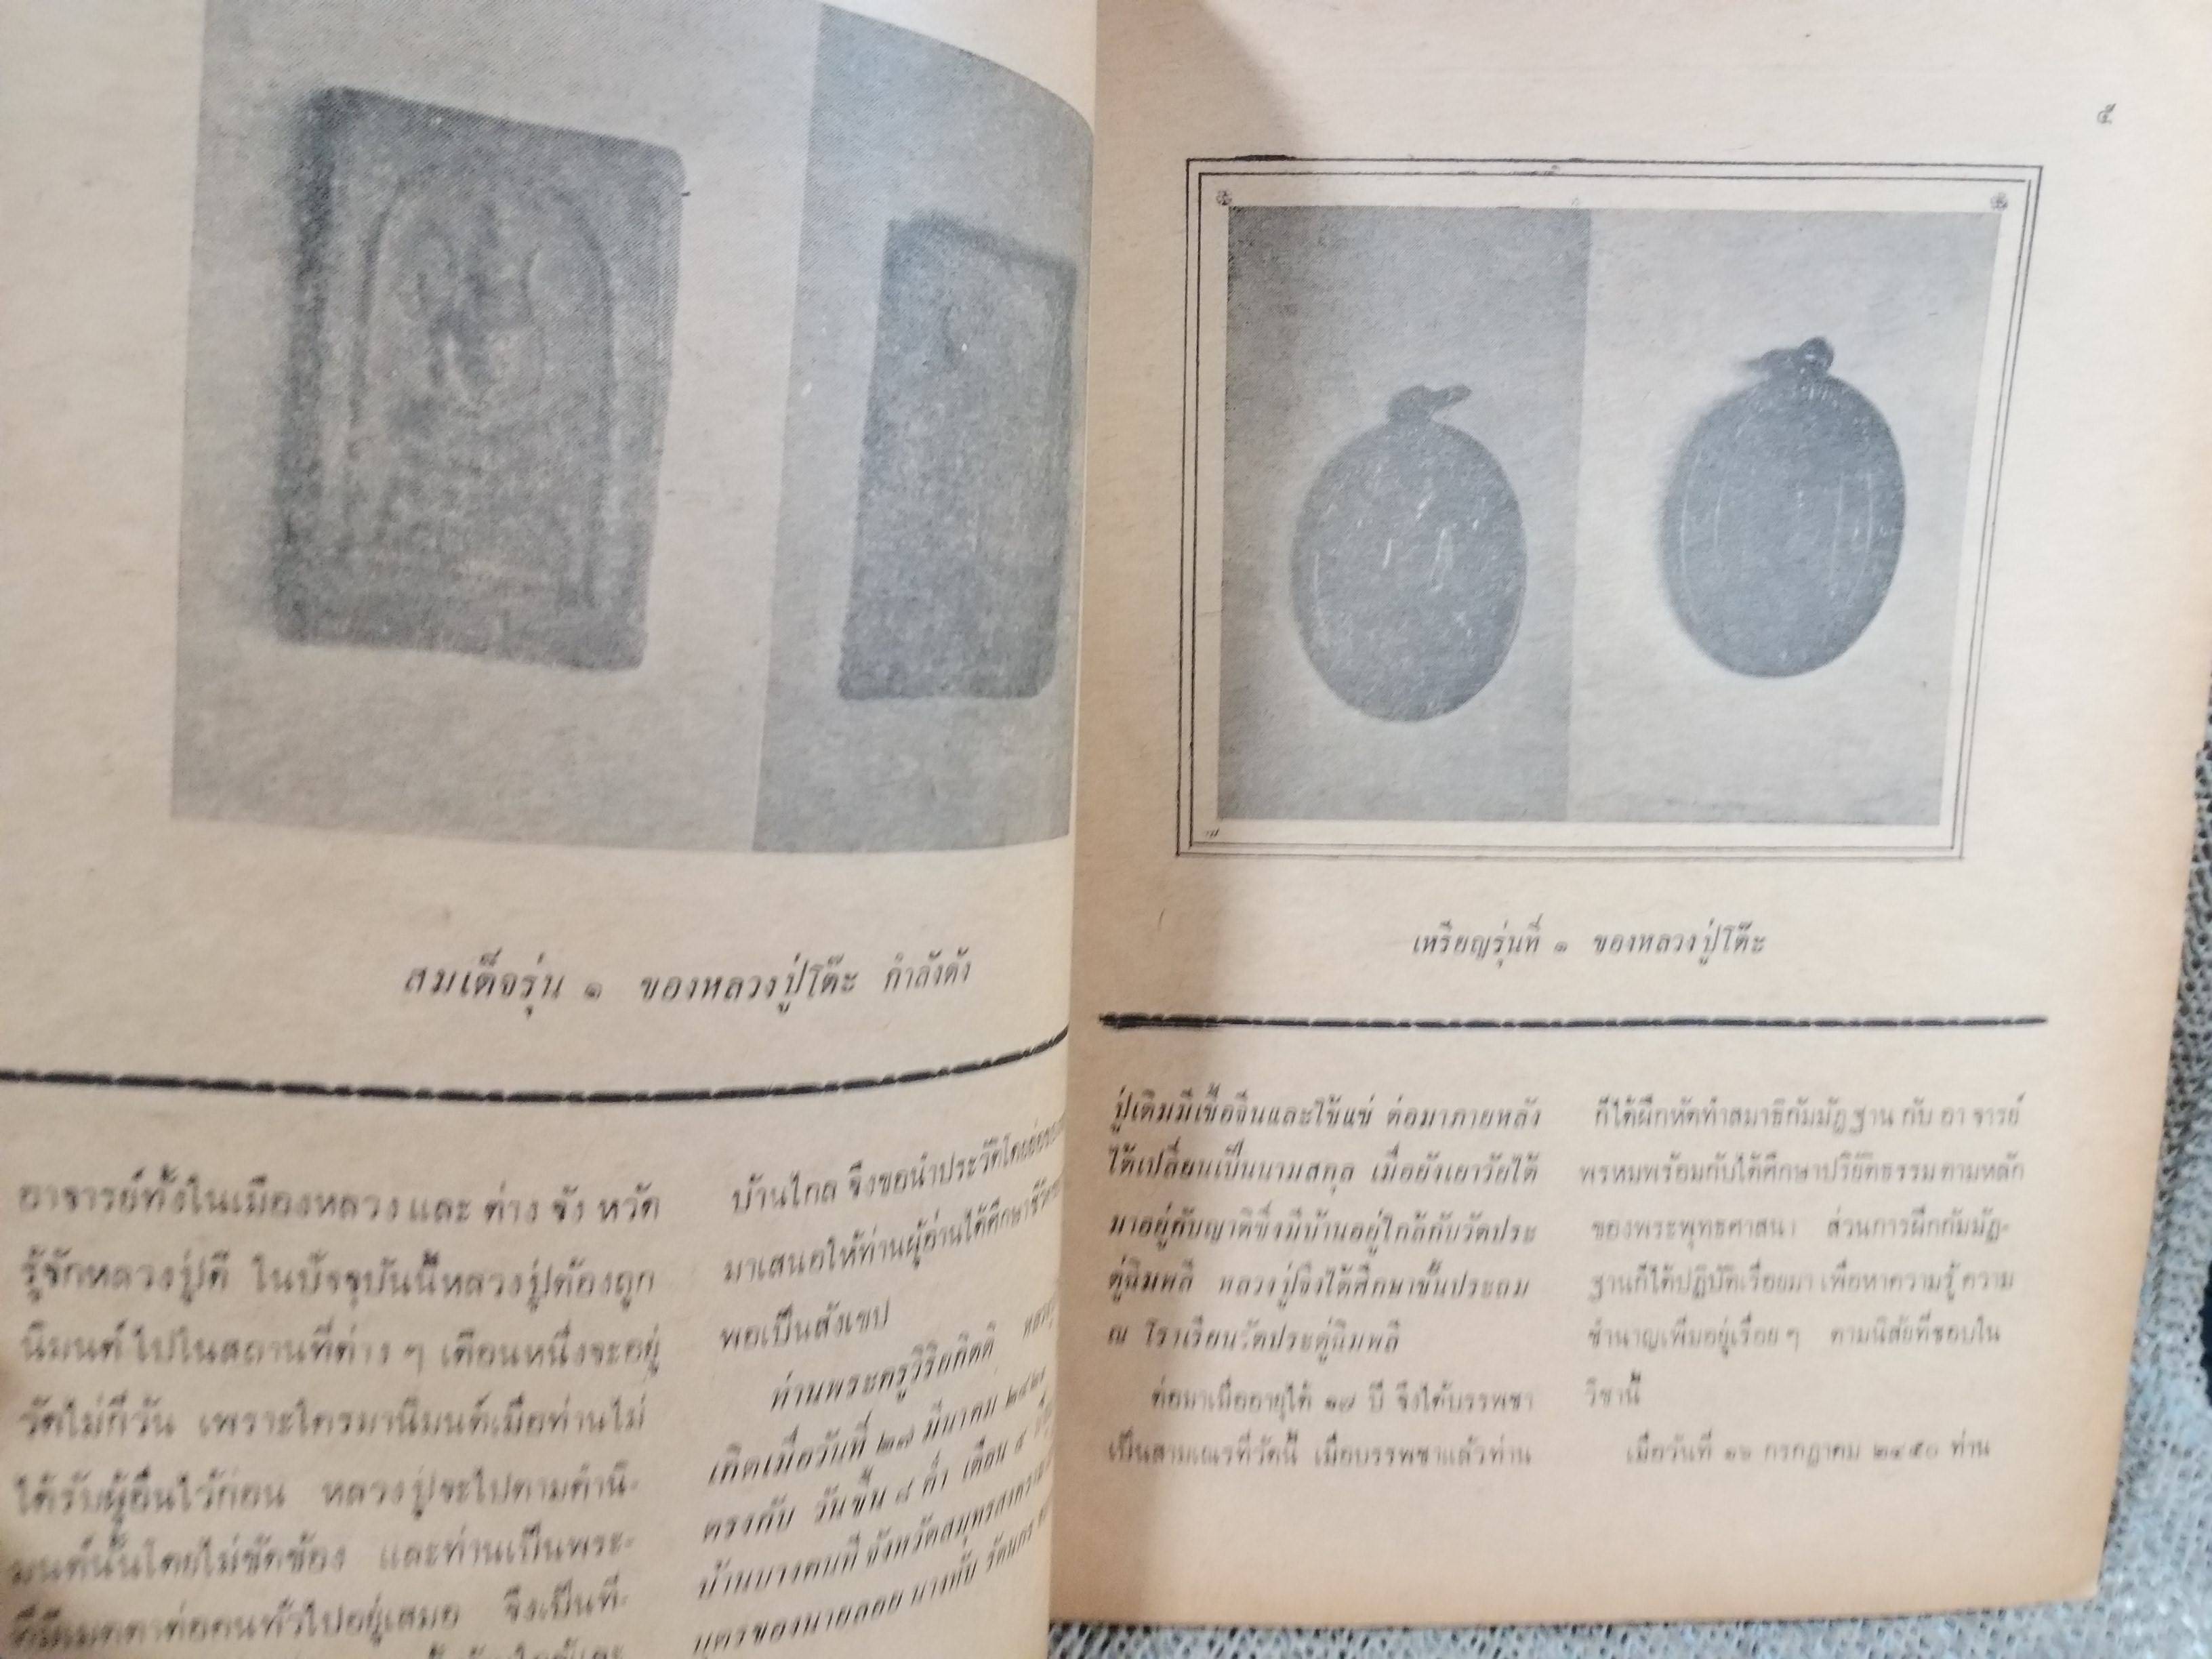 สมเด็จรุ่น ๑ ของหลวงปู่โต๊ะ กำลังดัง
อาจารย์ทั้งในเมืองหลวง และ ต่าง จัง หวัด
รู้จักหลวงปู่ดี ในปัจจุบันนี้หลวงปู่ต้องถูก
นิมนต์ไปในสถานที่ต่าง ๆ เดือนหนึ่งจะอยู่
วัดไม่กี่วัน เพราะใครมานิมนต์เมื่อท่านไม่
ได้รับผู้อื่นไว้ก่อน หลวงปู่จะไปตามคำนิ-
มนต์นั้นโดยไม่ขัดข้อง และท่านเป็นพระ-
ที่มีเมตตาต่อคนทั่วไปอยู่เสมอ จึงเป็นที่-
บ้านไกล จึงขอนำประวัติโดยย่อของ
มาเสนอให้ท่านผู้อ่านได้ศึกษาชีวิต
พอเป็นสังเขป
ท่านพระครูวิริยกิตติ
เกิดเมื่อวันที่ ๒๗ มีนาคม ๒๔๒๙
ตรงกับ วันขึ้น ๘ ค่ำ เดือน ๕
บ้านบางคนที จังหวัดสมุทรสาคร
บุตรของนายลอย นางทับ รัตนกร
๕
เหรียญรุ่นที่ ๑ ของหลวงปู่โต๊ะ
ปู่เดิมมีเชื้อจีนและใช้แซ่ ต่อมาภายหลัง
ได้เปลี่ยนเป็นนามสกุล เมื่อยังเยาวัยได้
มาอยู่กับญาติซึ่งมีบ้านอยู่ใกล้กับวัดประ
ตู่ฉิมพลี หลวงปู่จึงได้ศึกษาชั้นประถม
ณ โรงเรียนวัดประตู่ฉิมพลี
ต่อมาเมื่ออายุได้ ๑๗ ปี จึงได้บรรพชา
เป็นสามเณรที่วัดนี้ เมื่อบรรพชาแล้วท่าน
ก็ได้ฝึกหัดทำสมาธิกัมมัฏฐาน กับ อา จารย์
พรหมพร้อมกับได้ศึกษาปริยัติธรรมตามหลัก
ของพระพุทธศาสนา ส่วนการฝึกกัมมัฏ-
ฐานก็ได้ปฏิบัติเรื่อยมา เพื่อหาความรู้ ความ
ชำนาญเพิ่มอยู่เรื่อย ๆ ตามนิสัยที่ชอบใน
วิชานี้
เมื่อวันที่ ๑๖ กรกฎาคม ๒๔๕๐ ท่าน